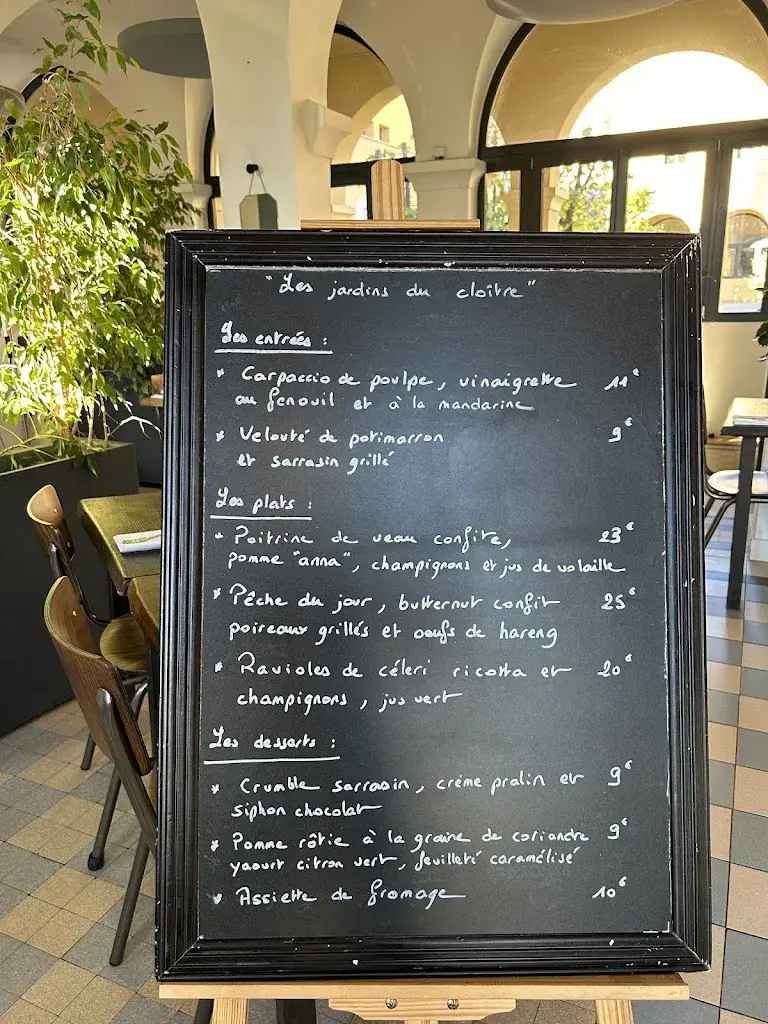 "Les jardins du cloître"
Les entrées :
* Carpaccio de poulpe, vinaigrette 11€
au fenouil et à la mandarine
* Velouté de potimarron 9€
et sarrasin grillé
Les plats :
* Poitrine de veau confite, 23€
pomme "anna", champignons et jus de volaille
* Pêche du jour, butternut confit 25€
poireaux grillés et oeufs de hareng
* Ravioles de céleri ricotta et 20€
champignons, jus vert
Les desserts :
* Crumble sarrasin, crème pralin et 9€
siphon chocolat
* Pomme rôtie à la graine de coriandre 9€
yaourt citron vert, feuilleté caramélisé
* Assiette de fromage 10€